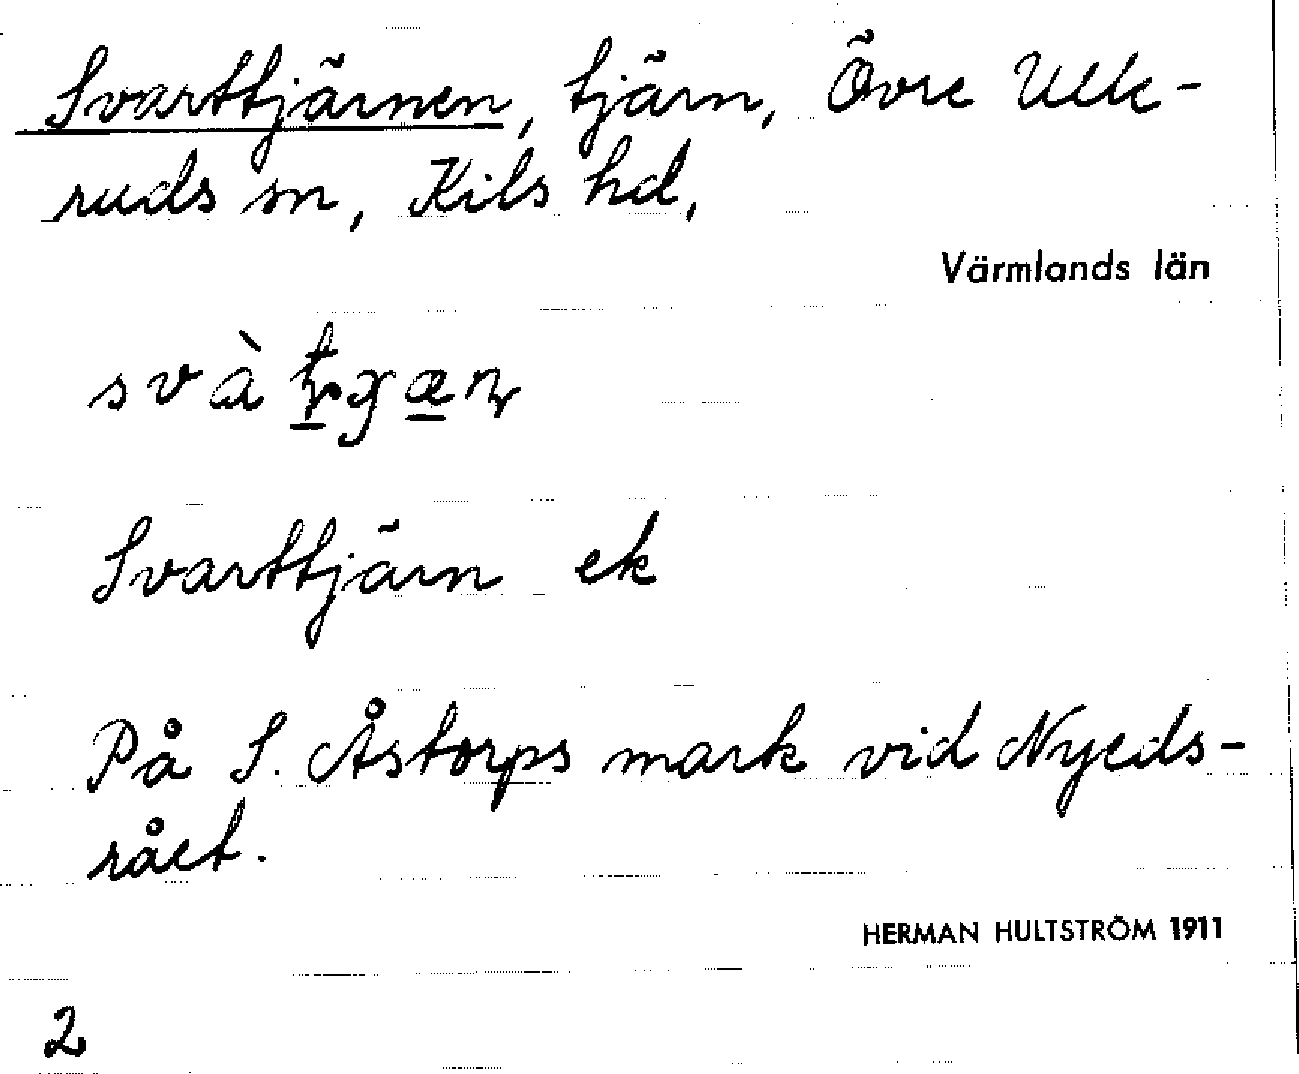 Svarttjärnen, tjärn, Övre Ulle-
ruds sn, Kils hd,
Värmlands län
Svarttjärn ek
På S. Åstorps mark vid Nyeds-
rået.
HERMAN HULTSTRÖM 1911
2